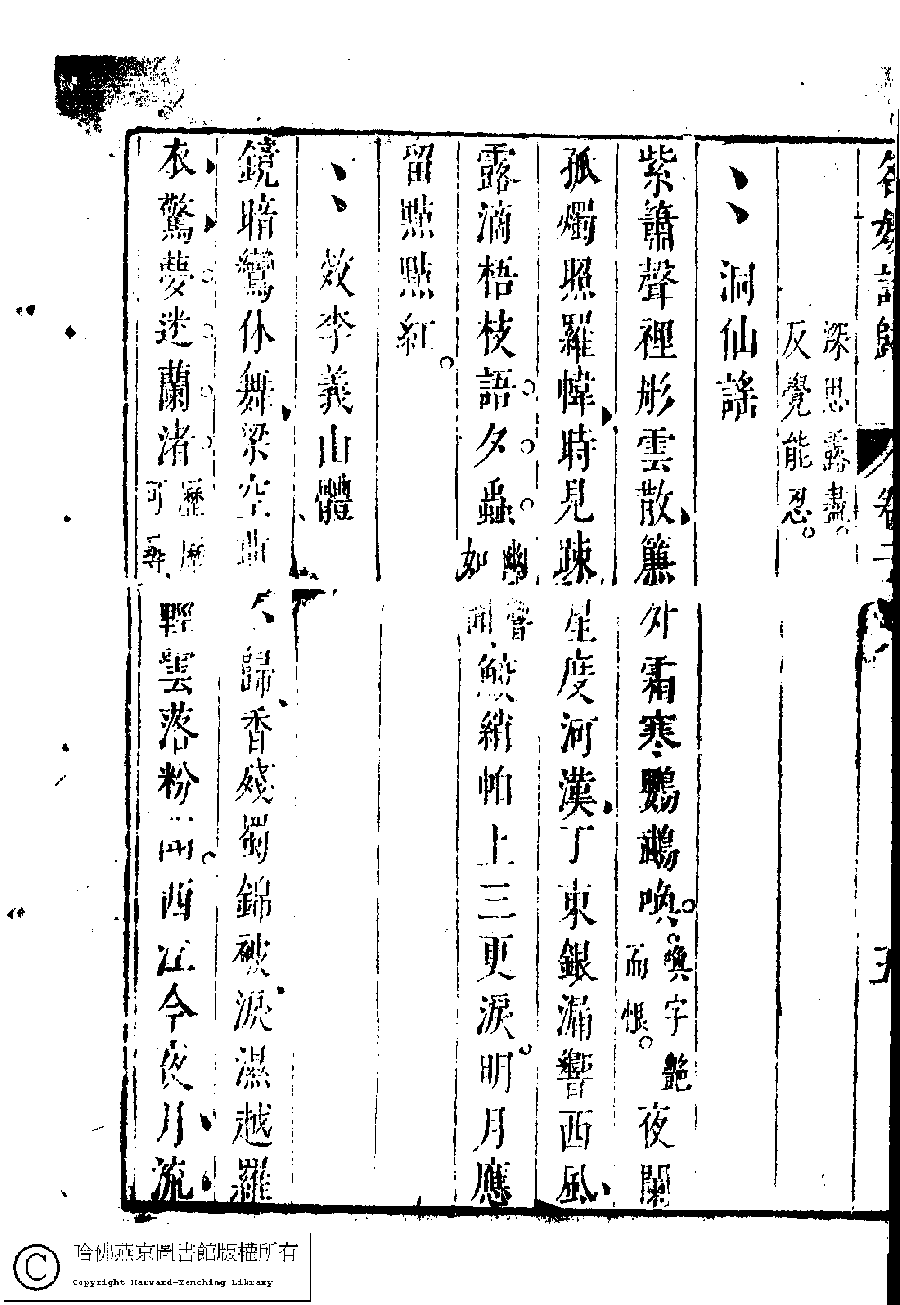 名媛詩歸 卷二 五
深思露盡。
反覺能忍。
洞仙謠
紫簫聲裡彤雲散簾外霜寒鸚鵡喚。喚字艷而恨。夜闌
孤燭照羅幃時見踈星度河漢丁東銀漏響西風
露滴梧枝語夕蟲幽響如聞鮫綃帕上三更淚明月應
留點點紅。
效李義山體
鏡暗鸞休舞梁空曲歸香殘蜀錦破淚濕越羅
衣驚夢迷蘭渚歷歷可尋輕雲落粉西江今夜月流
哈佛燕京圖書館版權所有
Copyright Harvard-Yenching Library